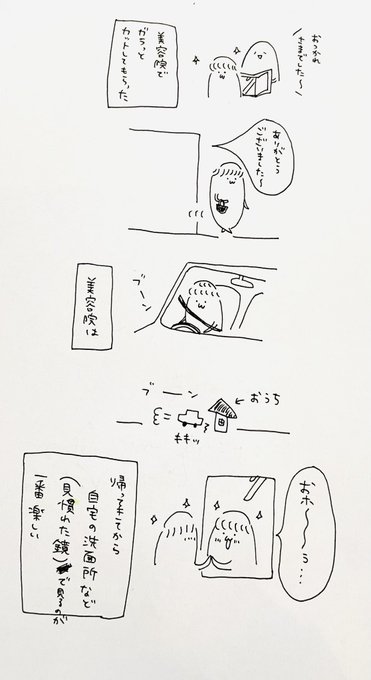 美容院で
がらっと
カットしてもらった
おつかれ
さまでした〜
ありがとう
ございました〜
美容院は
ブーン
ブーン
おうち
キキッ
おホ〜〜う…
帰ってきてから
自宅の洗面所など
(見慣れた鏡)で見るのが
一番楽しい